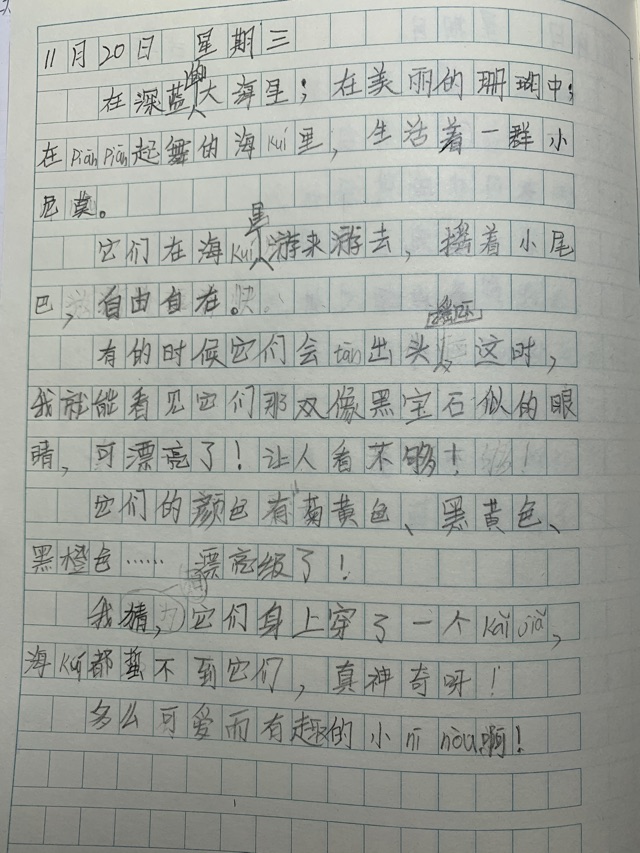 11月20日 星期三
在深蓝的大海里；在美丽的珊瑚中；
在piān piān起舞的海kuí里，生活着一群小
尼莫。
它们在海kuí里游来游去，摇着小尾
巴，自由自在。
有的时候它们会tàn出头，这时，
我就能看见它们那双像黑宝石似的眼
睛，可漂亮了！让人看不够！
它们的颜色有菊黄色、黑黄色、
黑橙色……漂亮级了！
我猜，它们身上穿了一个kǎi jiǎ，
海kuí都蜇不到它们，真神奇呀！
多么可爱而有趣的小nī mòu啊！